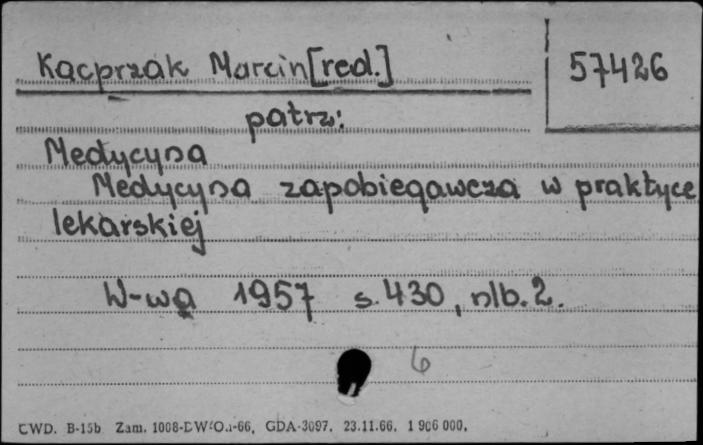 Kacprzak Marcin [red.]
57426
patrz:
Medycyna
Medycyna zapobiegawcza w praktyce
lekarskiej
W-wa 1957 s. 430, nlb. 2.
6
CWD. B-15b Zam. 1008- -66, GDA-3097. 23.11.66. 1 906 000.